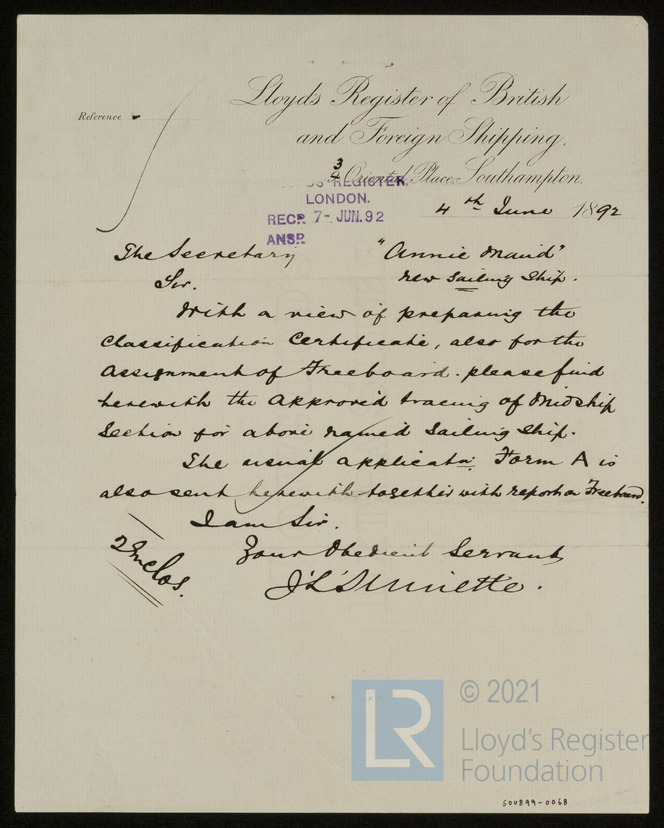 Lloyd's Register of British
and Foreign Shipping,
Reference
3
4 Oriental Place, Southampton.
LLOYD'S REGISTER,
LONDON.
RECD 7- JUN. 92
ANSD
4th June 1892
The Secretary
"Annie Maud"
Sir.
New Sailing Ship.
With a view of preparing the
Classification Certificate, also for the
Assignment of Freeboard. please find
herewith the approved tracing of Midship
Section for above named Sailing Ship.
The usual applicatn. Form A is
also sent herewith together with report on Freeboard.
I am Sir.
Your Obedient Servant
2 Enclos.
© 2021
LR
Lloyd's Register
Foundation
S00899-0068